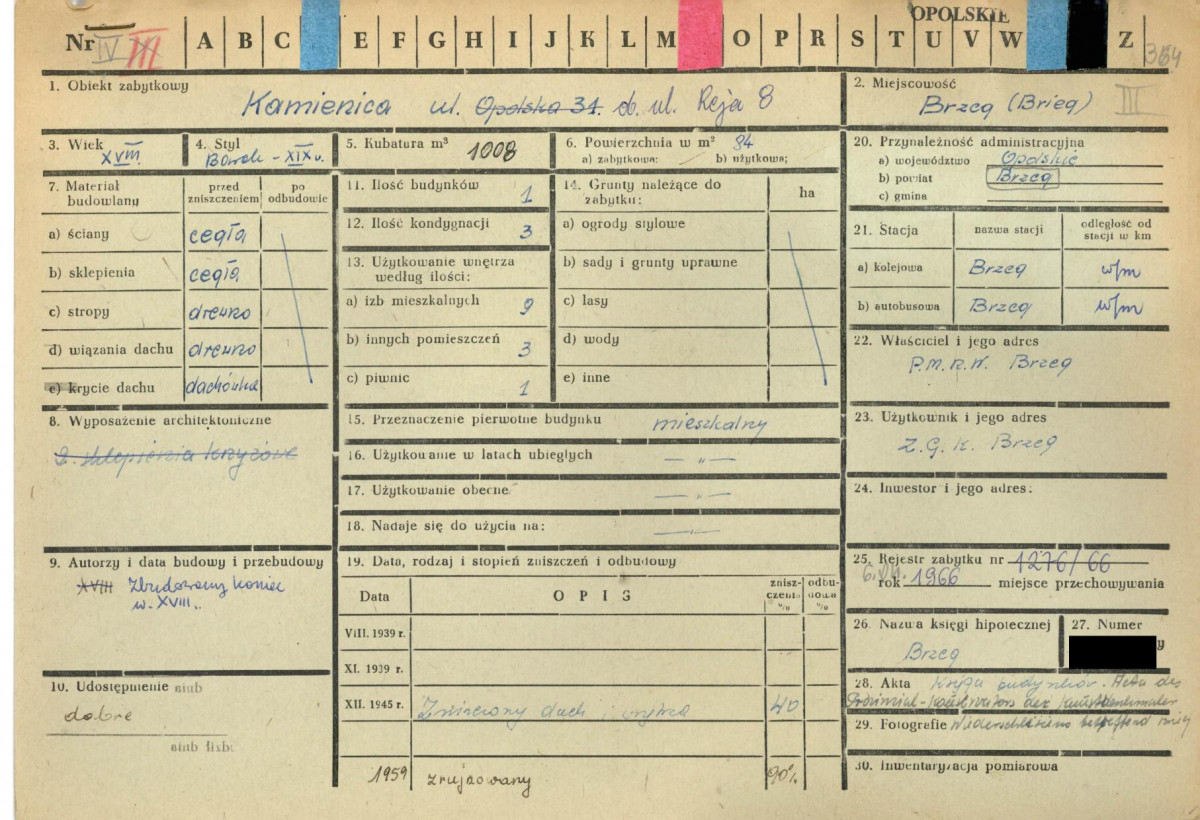 OPOLSKIE
Nr IV III A B C E F G H I J K L M O P R S T U V W Z 364
1. Obiekt zabytkowy
Kamienica ul. Opolska 34. d. ul. Reja 8
2. Miejscowość
Brzeg (Brieg) III
3. Wiek
XVIII
4. Styl
Barok - XIX w.
5. Kubatura m³ 1008
6. Powierzchnia w m² 84
a) zabytkowa: b) użytkowa;
7. Materiał budowlany
przed zniszczeniem
po odbudowie
a) ściany cegła
b) sklepienia cegła
c) stropy drewno
d) wiązania dachu drewno
e) krycie dachu dachówka
8. Wyposażenie architektoniczne
2. sklepienia krzyżowe
9. Autorzy i data budowy i przebudowy
XVIII Zbudowany koniec
w. XVIII..
10. Udostępnienie
dobre
11. Ilość budynków 1
12. Ilość kondygnacji 3
13. Użytkowanie wnętrza
według ilości:
a) izb mieszkalnych 9
b) innych pomieszczeń 3
c) piwnic 1
14. Grunty należące do
zabytku: ha
a) ogrody stylowe
b) sady i grunty uprawne
c) lasy
d) wody
e) inne
15. Przeznaczenie pierwotne budynku mieszkalny
16. Użytkowanie w latach ubiegłych — „ —
17. Użytkowanie obecne — „ —
18. Nadaje się do użycia na: — „ —
19. Data, rodzaj i stopień zniszczeń i odbudowy
Data OPIS znisz-czenia % odbu-dowa %
VIII. 1939 r.
XI. 1939 r.
XII. 1945 r. Zniszczony dach i 40
1959 zrujnowany 90%
20. Przynależność administracyjna
a) województwo Opolskie
b) powiat Brzeg
c) gmina
21. Stacja nazwa stacji odległość od stacji w km
a) kolejowa Brzeg w/m
b) autobusowa Brzeg w/m
22. Właściciel i jego adres
P.M.R.N. Brzeg
23. Użytkownik i jego adres
Z.G.K. Brzeg
24. Inwestor i jego adres:
25. Rejestr zabytku nr 1276/66
rok 1966 miejsce przechowywania
26. Nazwa księgi hipotecznej
Brzeg
27. Numer
28. Akta Księga budynków. Akta des
Provinzial-Konservators der Kunstdenkmäler
29. Fotografie Niederschlesiens betreffend Brieg
30. Inwentaryzacja pomiarowa